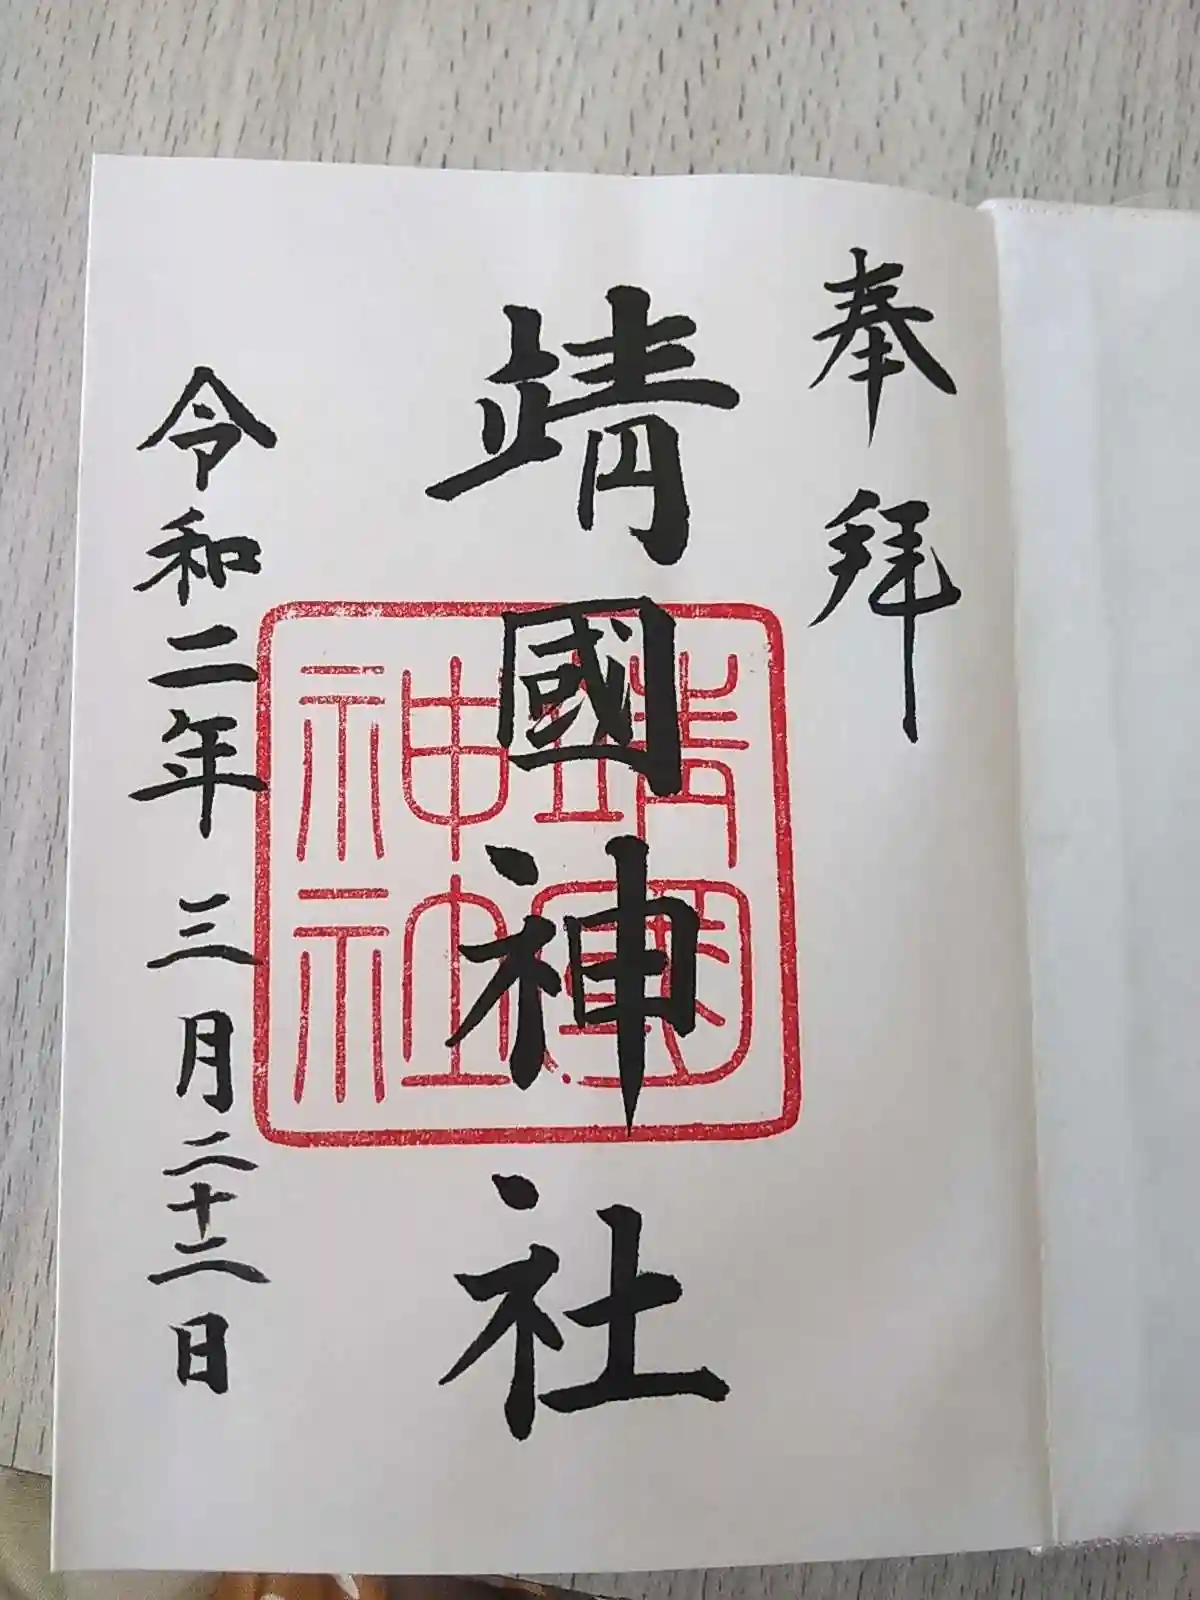 奉拜
靖國神社
靖國
神社
令和二年三月二十二日